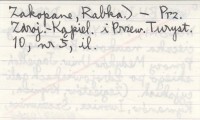 Zakopane, Rabka) – Prz.
Zdroj.-Kąpiel. i Przew. Turyst.
10, nr 5, il.